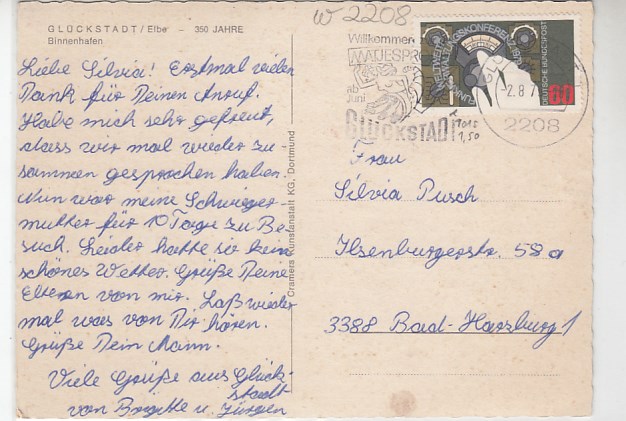 GLÜCKSTADT/Elbe – 350 JAHRE
Binnenhafen
Liebe Silvia! Erstmal vielen
Dank für Deinen Anruf.
Habe mich sehr gefreut,
dass wir mal wieder zu-
sammen gesprochen haben.
Nun war meine Schwieger-
mutter für 10 Tage zu Be-
such. Leider hatte sie kein
schönes Wetter. Grüße Deine
Eltern von mir. Laß wieder
mal was von Dir hören.
Grüße Dein Mann.
Viele Grüße aus Glück-
stadt
von Brigitte u. Jürgen
Cramers Kunstanstalt KG, Dortmund
W 2208
Willkommen
MATJES
ab
Juni
GLÜCKSTADT
-2.8.7
2208
DEUTSCHE BUNDESPOST
60
1,50
Frau
Silvia Pusch
Ilsenburgerstr. 58a
3388 Bad-Harzburg 1